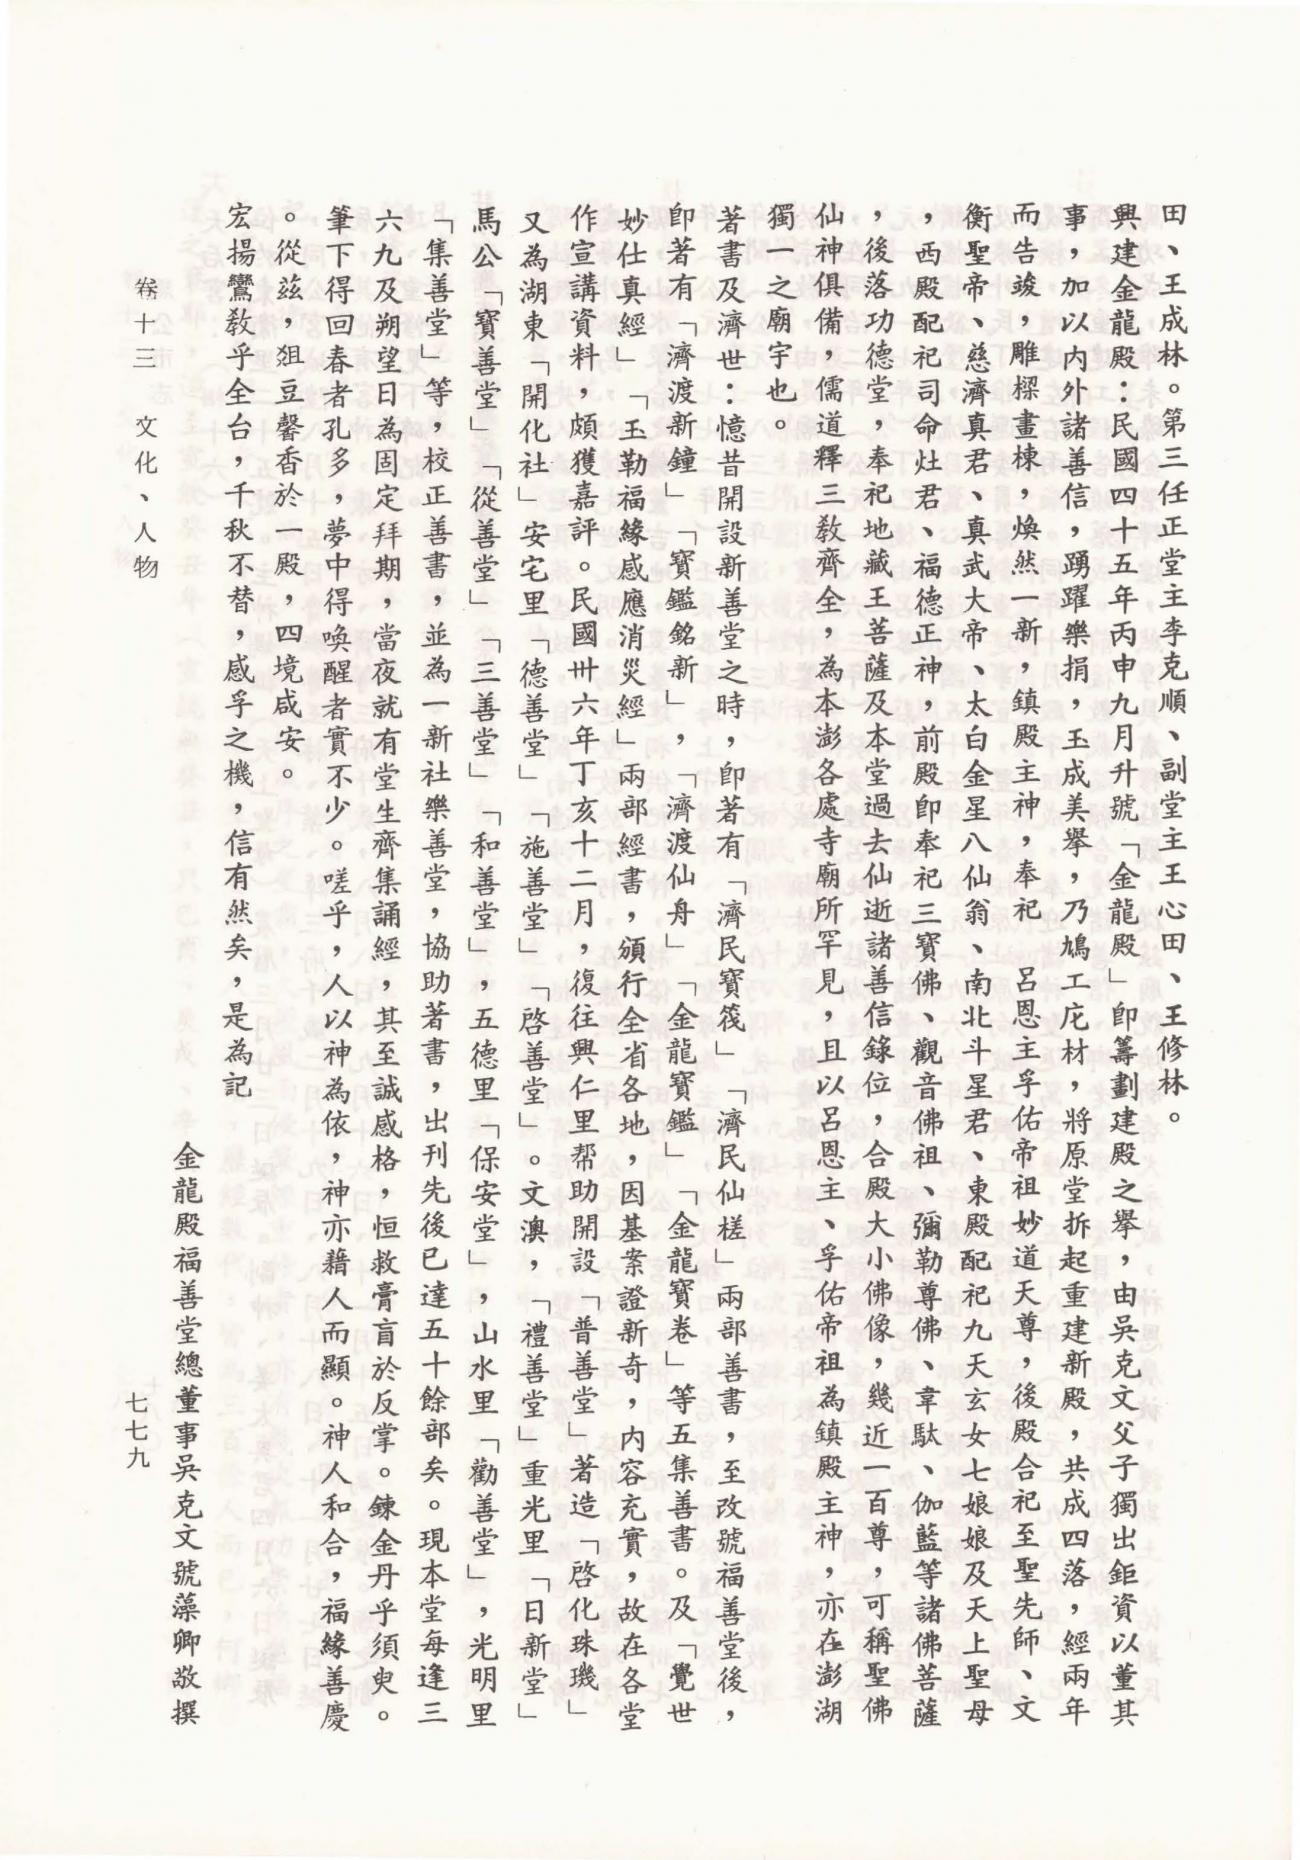 田、王成林。第三任正堂主李克順、副堂主王心田、王修林。
興建金龍殿：民國四十五年丙申九月升號「金龍殿」即籌劃建殿之舉，由吳克文父子獨出鉅資以董其
事，加以內外諸善信，踴躍樂捐，玉成美舉，乃鳩工庀材，將原堂拆起重建新殿，共成四落，經兩年
而告竣，雕樑畫棟，煥然一新，鎮殿主神，奉祀　呂恩主孚佑帝祖妙道天尊，後殿合祀至聖先師、文
衡聖帝、慈濟真君、真武大帝、太白金星八仙翁、南北斗星君、東殿配祀九天玄女七娘娘及天上聖母
，西殿配祀司命灶君、福德正神，前殿即奉祀三寶佛、觀音佛祖、彌勒尊佛、韋馱、伽藍等諸佛菩薩
，後落功德堂，奉祀地藏王菩薩及本堂過去仙逝諸善信錄位，合殿大小佛像，幾近一百尊，可稱聖佛
仙神俱備，儒道釋三教齊全，為本澎各處寺廟所罕見，且以呂恩主、孚佑帝祖為鎮殿主神，亦在澎湖
獨一之廟宇也。
著書及濟世：憶昔開設新善堂之時，即著有「濟民寶筏」「濟民仙槎」兩部善書，至改號福善堂後，
即著有「濟渡新鐘」「寶鑑銘新」，「濟渡仙舟」「金龍寶鑑」「金龍寶卷」等五集善書。及「覺世
妙仕真經」「玉勒福緣感應消災經」兩部經書，頒行全省各地，因基案證新奇，內容充實，故在各堂
作宣講資料，頗獲嘉評。民國卅六年丁亥十二月，復往興仁里帮助開設「普善堂」著造「啓化珠璣」
又為湖東「開化社」安宅里「德善堂」「施善堂」「啓善堂」。文澳，「禮善堂」重光里「日新堂」
馬公「寶善堂」「從善堂」「三善堂」「和善堂」，五德里「保安堂」，山水里「勸善堂」，光明里
「集善堂」等，校正善書，並為一新社樂善堂，協助著書，出刊先後已達五十餘部矣。現本堂每逢三
六九及朔望日為固定拜期，當夜就有堂生齊集誦經，其至誠感格，恒救膏肓於反掌。鍊金丹乎須臾。
筆下得回春者孔多，夢中得喚醒者實不少。嗟乎，人以神為依，神亦藉人而顯。神人和合，福緣善慶
。從茲，俎豆馨香於一殿，四境咸安。
宏揚鸞教乎全台，千秋不替，感孚之機，信有然矣，是為記
金龍殿福善堂總董事吳克文號藻卿敬撰
卷十三　文化、人物
七七九